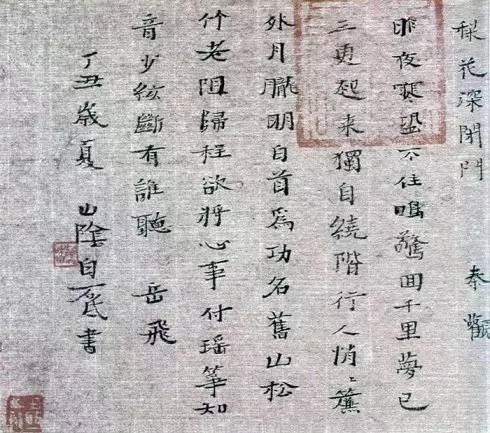 梨花深閉門 秦觀
昨夜寒蛩不住鳴驚囬千里夢已
三更起来獨自繞階行人悄〻簾
外月朧明白首爲功名舊山松
竹老阻歸程欲將心事付瑶筝知
音少絃斷有誰聽 岳飛
丁丑歲夏 山陰自書